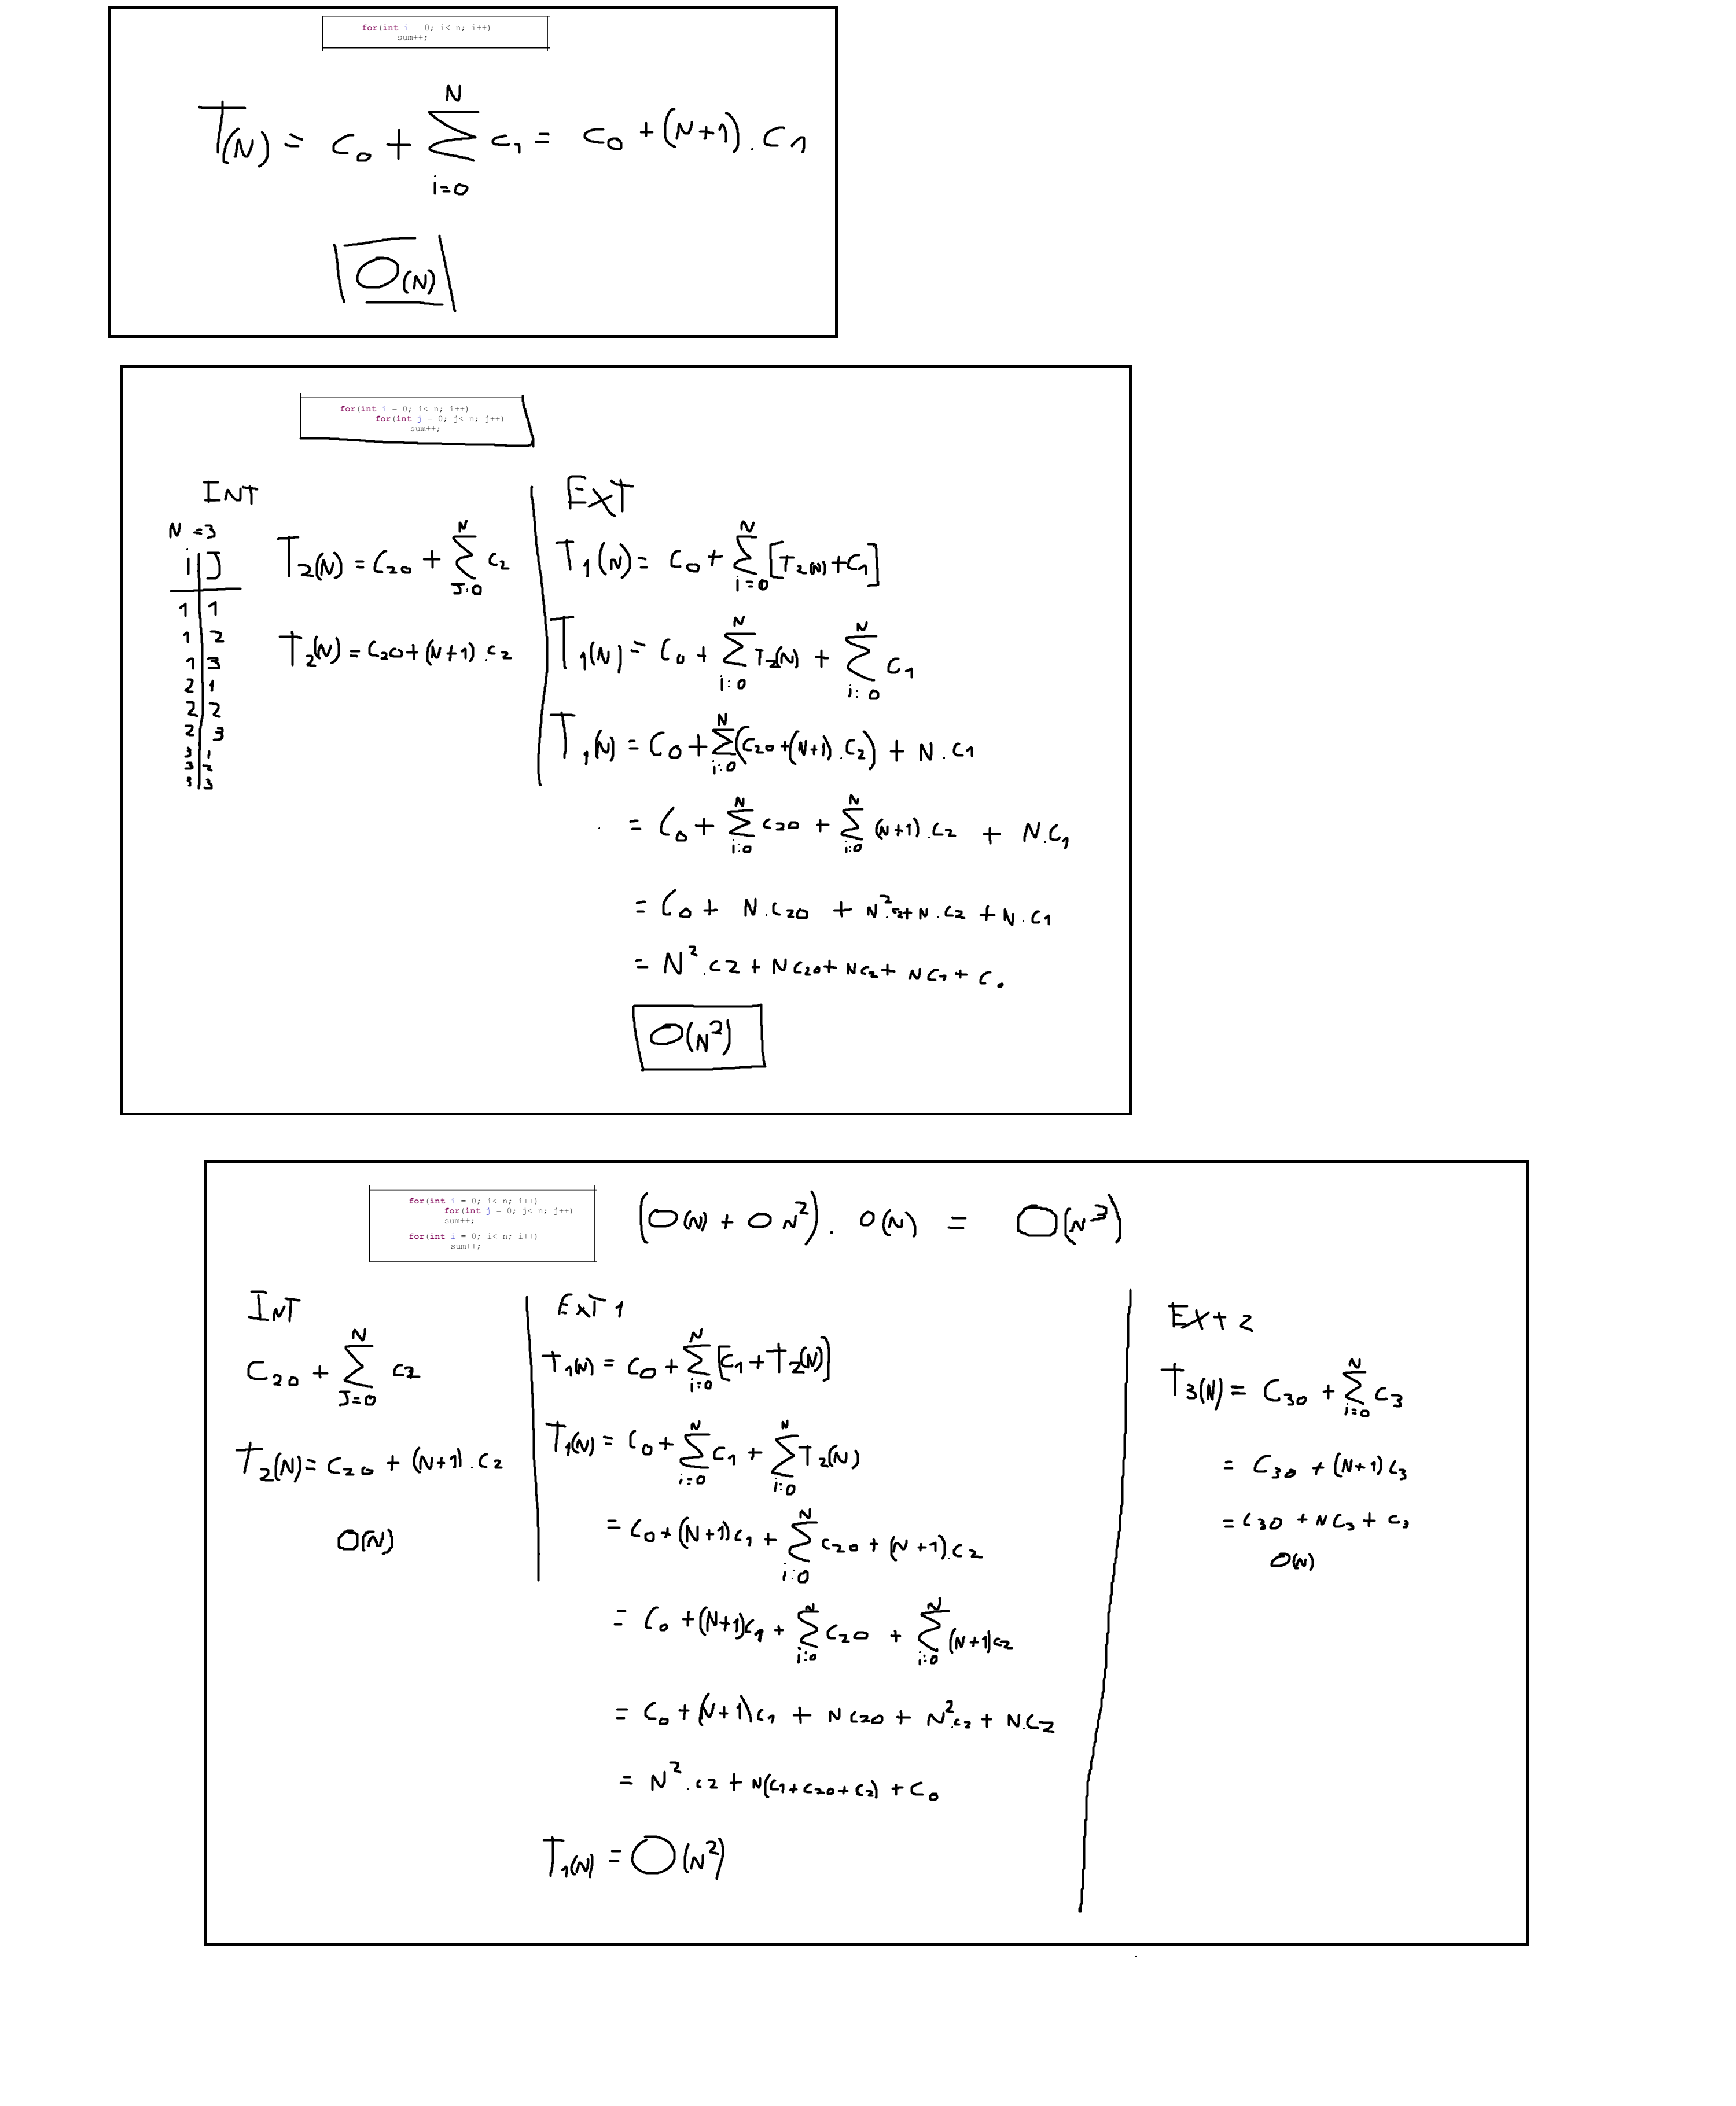 for(int i = 0; i< n; i++)
sum++;
T(N) = c0 + N∑i=0 c1 = c0 + (N+1) . c1
O(N)
for(int i = 0; i< n; i++)
for(int j = 0; j< n; j++)
sum++;
INT
N = 3
i J
1 1
1 2
1 3
2 1
2 2
2 3
3 1
3 2
3 3
T2(N) = C20 + N∑J:0 c2
T2(N) = C20 + (N+1) . c2
EXT
T1(N) = C0 + N∑i=0 [T2(N) + C1]
T1(N) = C0 + N∑i:0 T2(N) + N∑i:0 C1
T1(N) = C0 + N∑i:0 (C20 + (N+1) . C2) + N . C1
= C0 + N∑i:0 C20 + N∑i:0 (N+1) . C2 + N.C1
= C0 + N.C20 + N².c2 + N.C2 + N.C1
= N².C2 + NC20 + NC2 + NC1 + C0
O(N²)
for(int i = 0; i< n; i++)
for(int j = 0; j< n; j++)
sum++;
for(int i = 0; i< n; i++)
sum++;
(O(N) + O N²) . O(N) = O(N³)
INT
C20 + N∑J=0 C2
T2(N) = C20 + (N+1) . C2
O(N)
EXT 1
T1(N) = C0 + N∑i=0 [C1 + T2(N)]
T1(N) = C0 + N∑i=0 C1 + N∑i:0 T2(N)
= C0 + (N+1)C1 + N∑i:0 C20 + (N+1).C2
= C0 + (N+1)C1 + N∑i:0 C20 + N∑i:0 (N+1)C2
= C0 + (N+1)C1 + NC20 + N².C2 + N.C2
= N².C2 + N(C1 + C20 + C2) + C0
T1(N) = O(N²)
EXT 2
T3(N) = C30 + N∑i=0 C3
= C30 + (N+1)C3
= C30 + NC3 + C3
O(N)